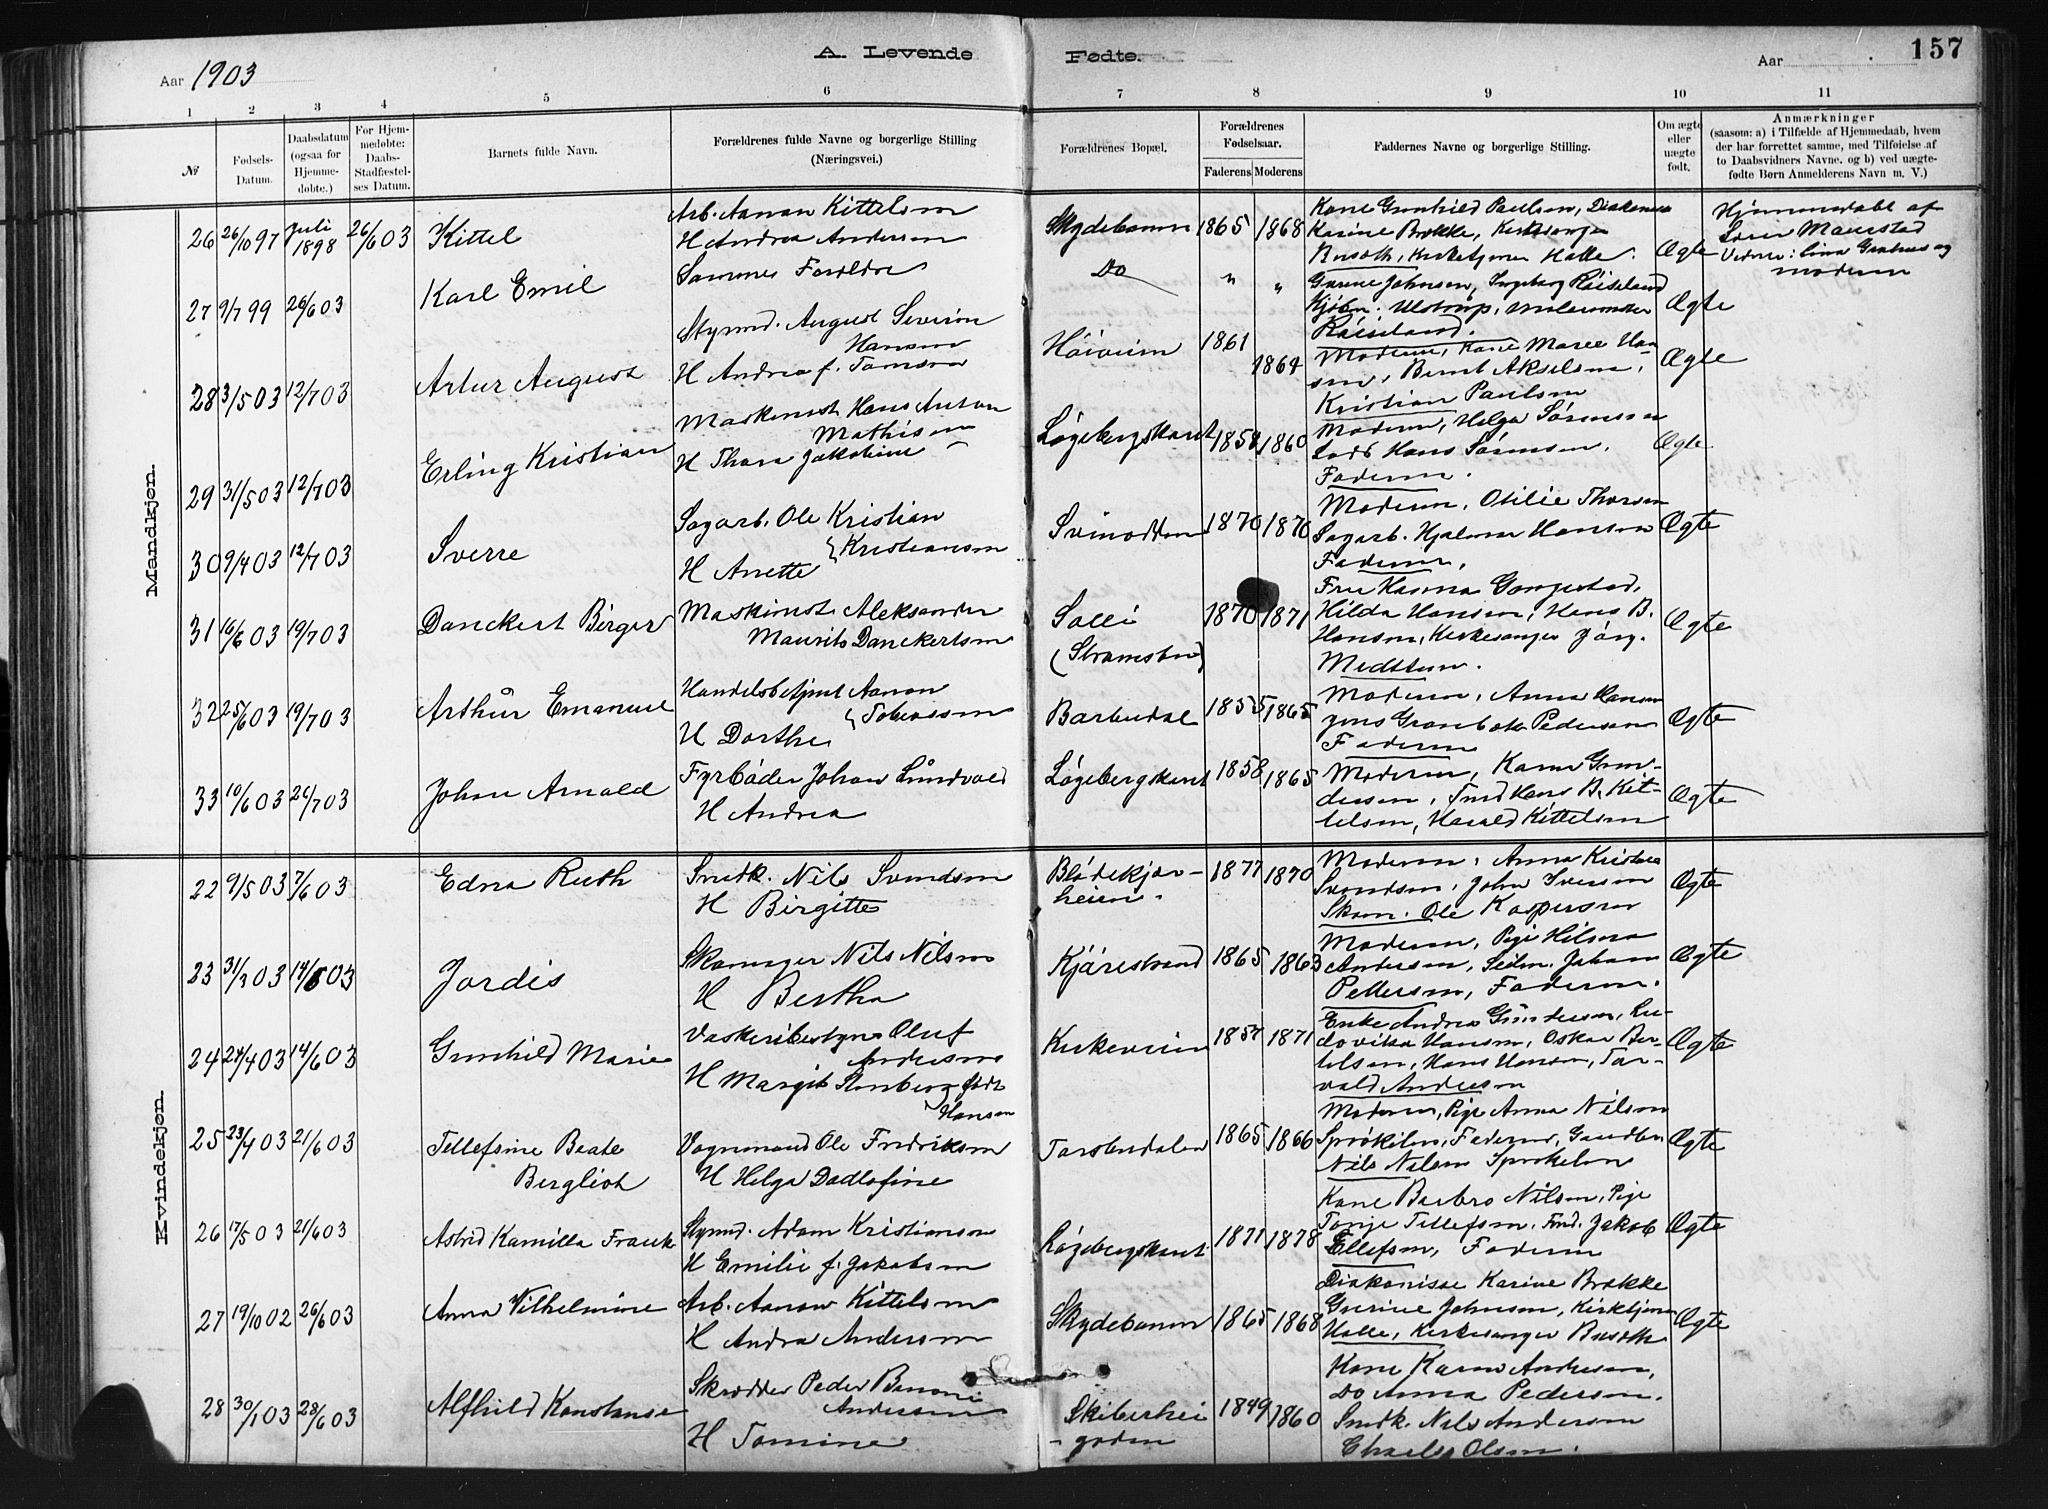 Aar 1903
A. Levende
Fødte.
Aar
157
1 2 3 4 5 6 7 8 9 10 11
№
Fødsels-Datum.
Daabsdatum (ogsaa for Hjemmedøbte.)
For Hjemmedøbte: Daabs-Stadfæstelses Datum.
Barnets fulde Navn.
Forældrenes fulde Navne og borgerlige Stilling (Næringsvei.)
Forældrenes Bopæl.
Forældrenes Fødselsaar.
Faderens Moderens
Faddernes Navne og borgerlige Stilling.
Om ægte eller uægte født.
Anmærkninger
(saasom: a) i Tilfælde af Hjemmedaab, hvem
der har forrettet samme, med Tilføielse af
to Daabsvidners Navne. og b) ved uægte-
fødte Børn Anmelderens Navn m. V.)
Mandkjøn.
26 26/10 97 Juli 1898 26/6 03 Kittel
Arb. Aanon Kittelsen
H Andrea Andersen
Skydebanen 1865 1868
Karine Brække, Kirkesanger
Ægte
Hjemmedøbt af
27 9/7 99 26/6 03 Karl Emil
Sammes Forældre
Do " "
Gurine Johnsen, Ingeborg Røiseland
Røiseland.
Ægte
28 3/5 03 12/7 03 Artur August
Styrmd. August Severin
Hansen
H Andrea f. Tomsen
1861 1864
Moderen, Kone Maree Han-
sen, Bernt Akselsen,
Kristian Paulsen
Ægte
29 31/5 03 12/7 03 Erling Kristian
Maskinist Hans Anton
Mathisen
H Thora Jakobine
Løgebergskant 1858 1860
Moderen, Helga Sørensen
Lods Hans Sørensen,
Faderen.
Ægte
30 9/4 03 12/7 03 Sverre
Sagarb. Ole Kristian
Kristiansen
H Anette
Svinodden 1870 1870
Moderen, Otilie Thorsen
Sagarb. Hjalmar Hansen
Faderen,
Ægte
31 16/6 03 19/7 03 Danckert Birger
Maskinist Aleksander
Maurits Danckertsen
Solli
(Strømsbu)
1870 1871
Hilda Hansen, Hans B.
Hansen, Kirkesanger Jörg.
Ægte
32 25/6 03 19/7 03 Arthur Emanuel
Handelsbetjent Aanon
Tobiassen
H Dorthe
Barbudal 1855 1865
Moderen, Anna Hansen
Faderen
Ægte
33 10/6 03 26/7 03 Johan Arnold
Fyrbøder Johan Lundvald
H Andrea
Løgebergskant 1858 1865
Moderen, Karen Gun-
dersen, Tmd Hans B. Kit-
telsen, Harald Kittelsen
Ægte
Kvindekjøn.
22 9/5 03 7/6 03 Edna Ruth
Snedk. Nils Svendsen
H Birgitte
Blødekjær-
heien.
1877 1870
Moderen, Anna Kristine
Svendsen, John Iversen
Skom. Ole Kaspersen
Ægte
23 31/3 03 14/6 03 Jordis
Skomager Nils Nilsen
H Bertha
Kjørestrand 1865 1863
Moderen, Pige Hilma
Andersen, Seilm. Johan
Pettersen, Faderen.
Ægte
24 24/4 03 14/6 03 Gunhild Marie
Vaskeribestyrer Oluf
Andersen
H Margit Stenberg født
Hansen
Kirkeveien 1857 1871
Enke Andrea Gundersen, Lu-
dovika Hansen, Oskar Ber-
telsen, Hans Hansen, Tor-
vald Andersen
Ægte
25 23/4 03 21/6 03 Tellefine Beate
Bergliot
Vognmand Ole Fredriksen
H Helga Dodlofine
Torsbudalen 1865 1866
Moderen, Pige Anna Nilsen
Nils Nilsen Sprokilen
Ægte
26 17/5 03 21/6 03 Astrid Kamilla Frank
Styrmd. Adam Kristiansen
H Emilie f. Jakobsen
Løgebergskant 1871 1878
Kone Barbro Nilsen, Pige
Tonje Tellefsen, Tmd. Jakob
Ellefsen, Faderen
Ægte
27 19/10 02 26/6 03 Anna Vilhelmine
Arb. Aanon Kittelsen
H Andrea Andersen
Skydebanen 1865 1868
Diakonisse Karine Brække
Gurine Johnsen, Kirketjener
Halle, Kirkesanger Busoth
Ægte
28 30/1 03 28/6 03 Alfhild Konstanse
Skrædder Peder Benoni
Andersen
H Tomine
Skiberhei
-goden
1849 1860
Kone Karen Andersen,
Do Anna Pedersen.
Snedk. Nils Andersen
Charles Olsen.